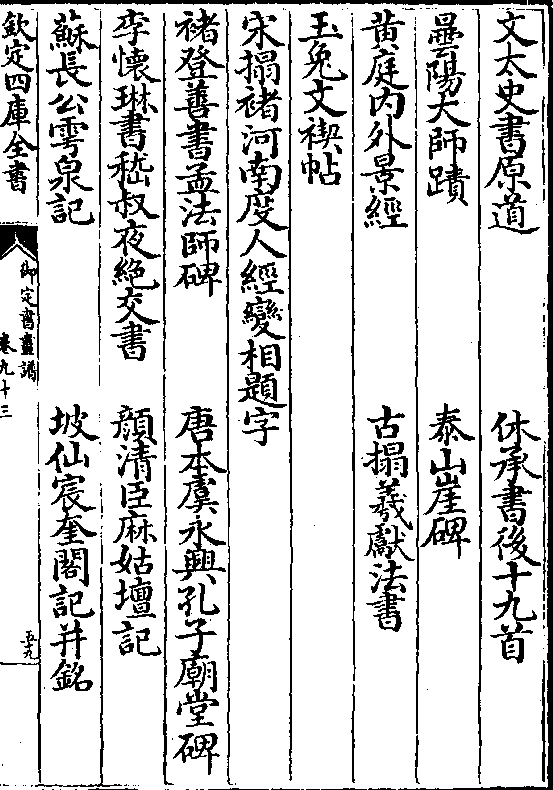 文太史書原道　休承書後十九首
曇陽大師蹟　泰山崖碑
黄庭内外景經　古搨羲獻法書
玉兔文禊帖
宋搨褚河南度人經變相題字
褚登善書孟法師碑　唐本虞永興孔子廟堂碑
李懷琳書嵇叔夜絶交書　顔清臣麻姑壇記
蘇長公雩泉記　坡仙宸奎閣記并銘
欽定四庫全書　御定書畫譜　卷九十三　五九